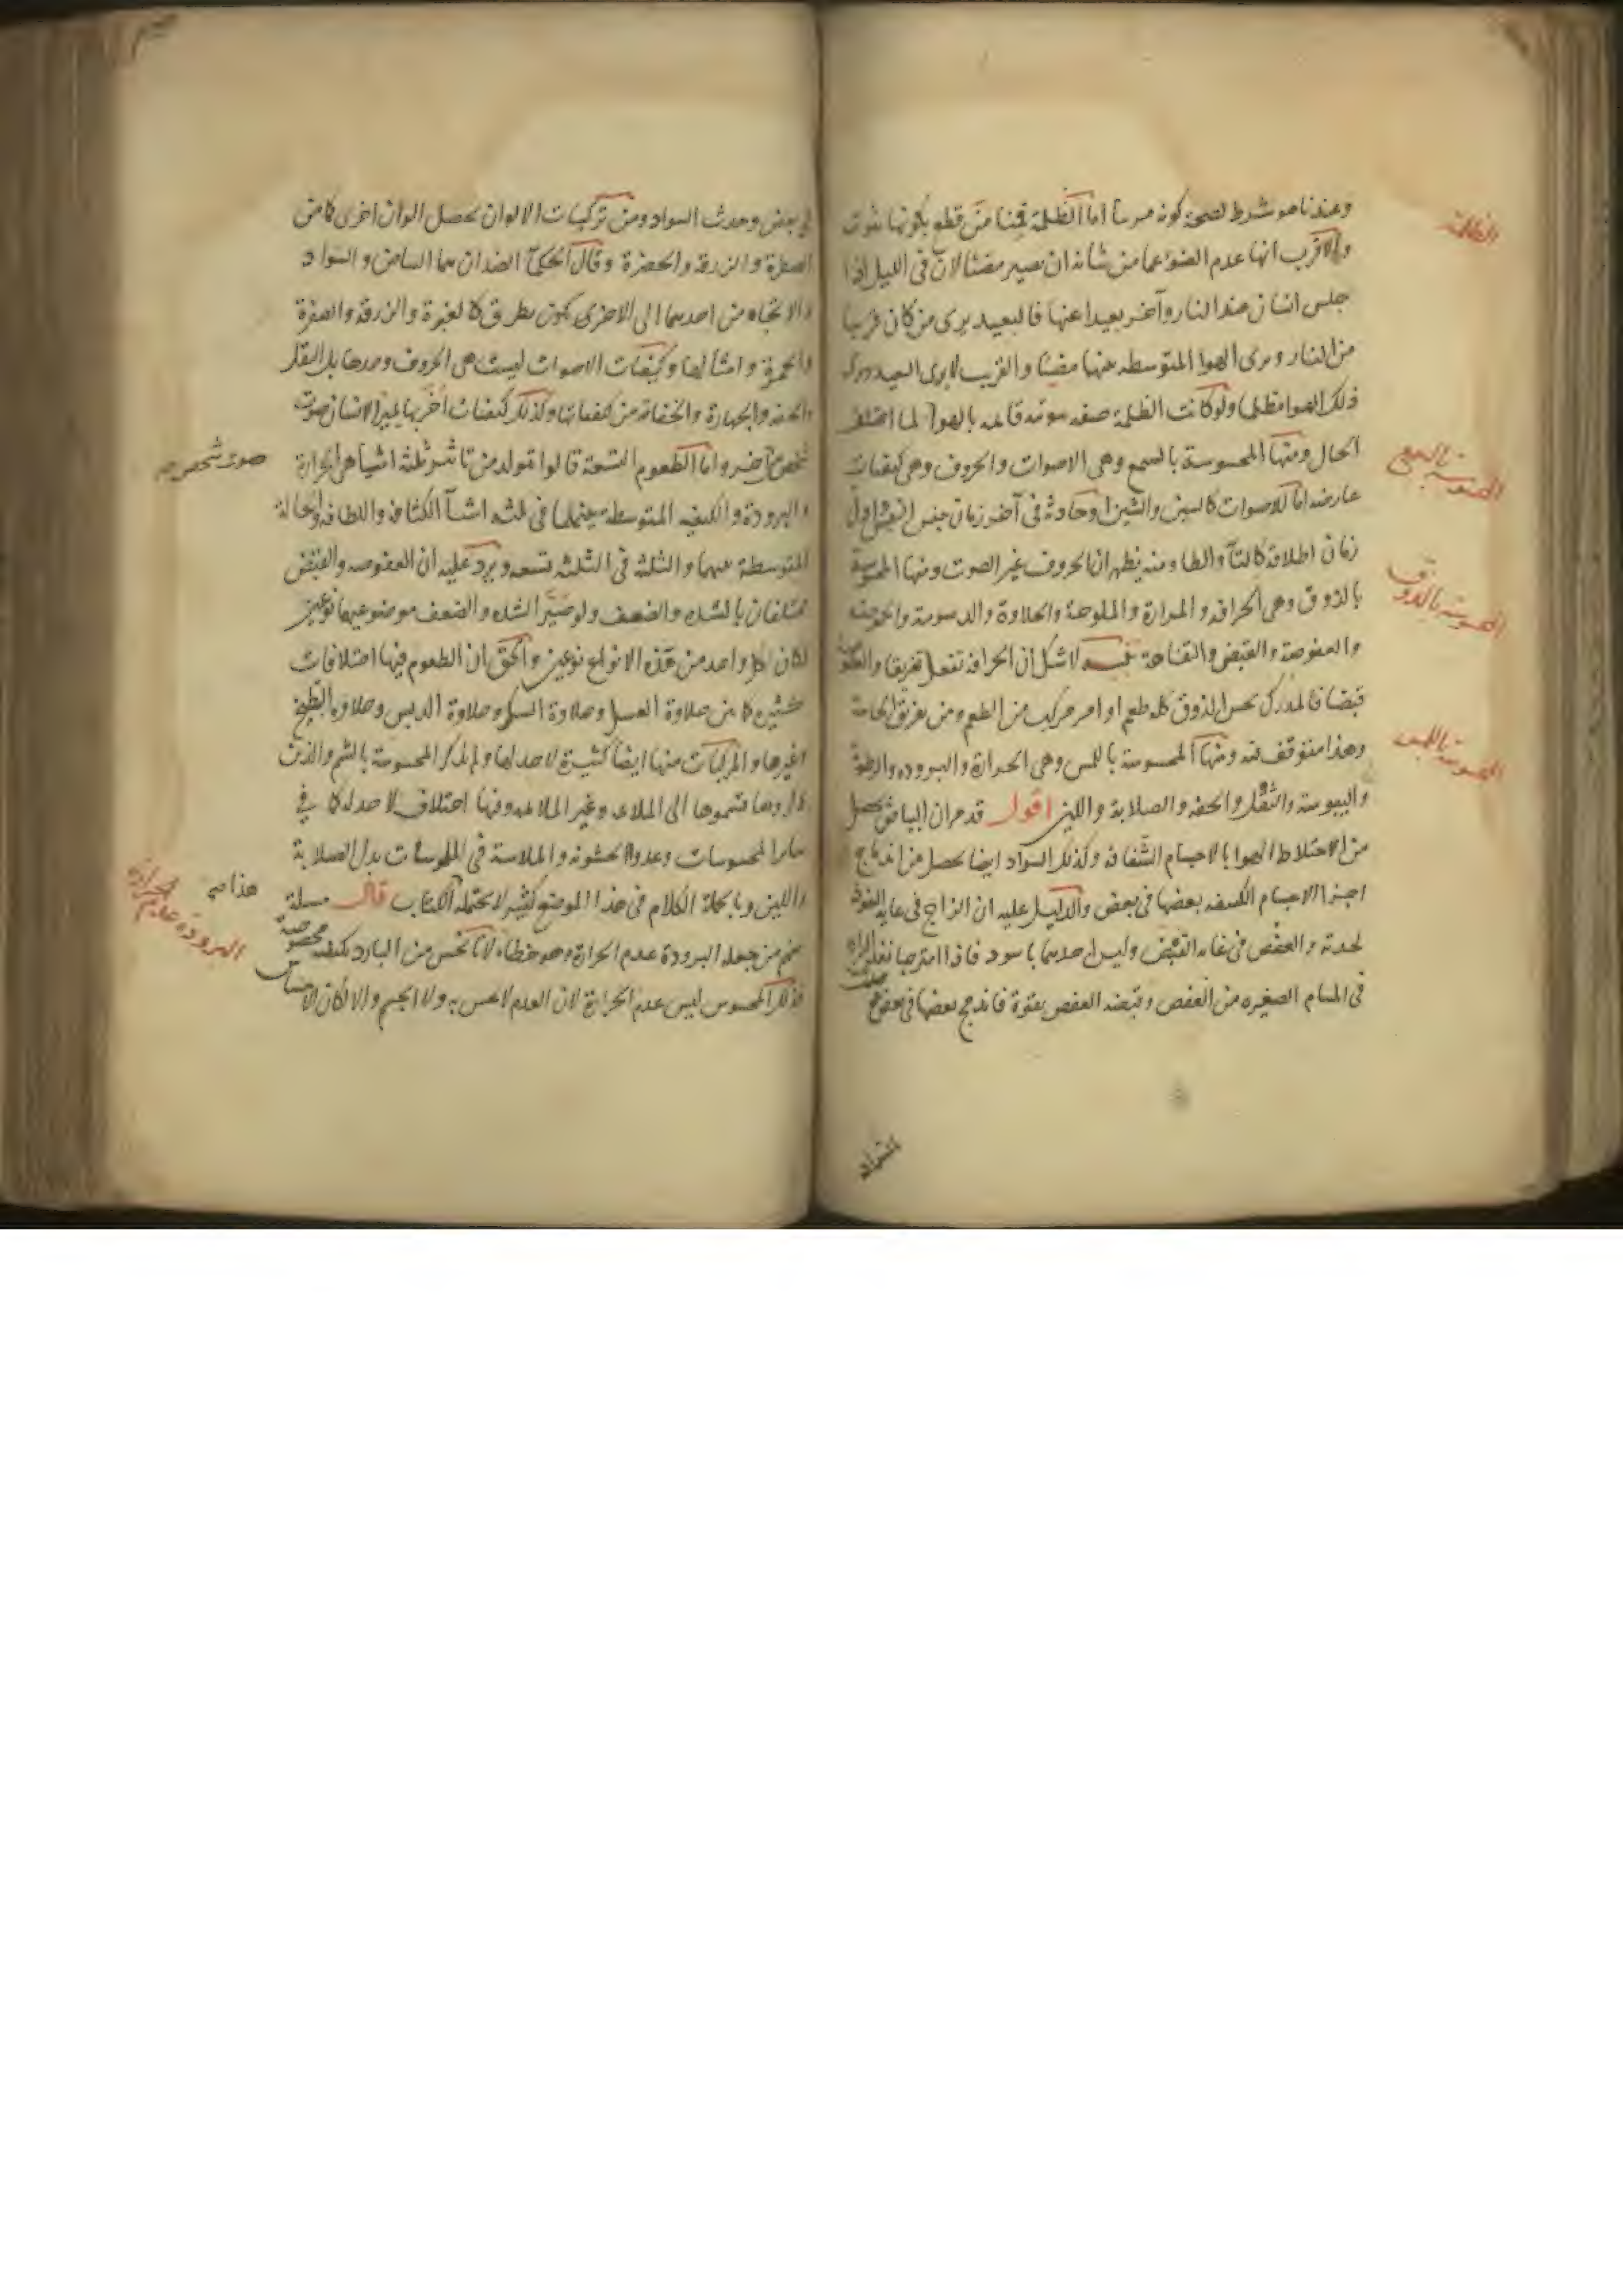 وعندنا هو شرط لصحة كونه مرئيا اما الظلمة فمنا من قطع بكونها ثبوت
والاقرب انها عدم الضوء عما من شانه ان يصير مضيئا لان فى الليل اذا
جلس انسان عند النار وآخر بعيدا عنها فالبعيد يرى من كان قريبا
من النار ويرى الهوا المتوسطه عنها مضيئا والقريب لا يرى البعيد ويرى
ذلك الهوا مظلما ولو كانت الظلمة صفه قائمه بالهوا لما اختلف
الحال ومنها المحسوسة بالسمع وهى الاصوات والحروف وهى كيفيات
عارضه اما للاصوات كالسين والشين او حادثة فى آخر زمان حبس النفس واول
زمان اطلاقه كالتا والطا ومنه يظهر ان الحروف غير الصوت ومنها المحسوسة
بالذوق وهى الحرافه والمرارة والملوحة والحلاوة والدسومة والحموضه
والعفوصة والقبض والتفاهة لا شك ان الحرافه تفعل تفريقا والعفوصة
قبضا فالمدرك بحس الذوق كله طعم او امر مركب من الطعم ومن تفريق الحاسة
وهذا متوقف فيه ومنها المحسوسة باللمس وهى الحرارة والبروده والرطوبة
واليبوسة والثقل والخفه والصلابة واللين اقول قد مر ان البياض يحصل
من الاختلاط الهوا بالاجسام الشفافه وكذلك السواد ايضا يحصل من اندماج
اجزا الاجسام الكثيفه بعضها فى بعض والدليل عليه ان الزاج فى غايه النفوذ
لحدته والعفص فى غايه القبض وليس احدهما باسود فاذا امتزجا نفذ الزاج
فى المسام الصغيره من العفص وقبضه العفص بقوة فاندمج بعضها فى بعض
الظلمة
المحسوسة بالسمع
المحسوسة بالذوق
المحسوسة باللمس
فى بعض وحدث السواد ومن تركيبات الالوان يحصل الوان اخرى كا من
الصفرة والزرقه والخضرة وقال الحكما الضدان هما البياض والسواد
والاتجاه من احدهما الى الاخرى يكون بطريق كالغبرة والزرقة والصفرة
والحمرة وامثالها وكيفيات الاصوات ليست هى الحروف وحدها بل الثقل
والخفه والجهارة والخفاة من كيفياتها وكذلك كيفيات أخر بها يميز الانسان صوت
شخص آخر واما الطعوم التسعة قالوا تتولد من تاثير ثلثة اشيا هى الحرارة
والبرودة والكيفيه المتوسطه بينهما فى ثلثه اشيا الكثافه واللطافه والحالة
المتوسطة بينهما والثلثه فى الثلثه تسعه ويرد عليه ان العفوصه والقبض
مختلفان بالشده والضعف ولو صير الشده والضعف موضوعيهما نوعين
لكان كل واحد من هذه الانواع نوعين والحق ان الطعوم فيها اختلافات
كثيره كا بين حلاوة العسل وحلاوة السكر وحلاوة الدبس وحلاوه البطيخ
وغيرها والمركبات منها ايضا كثيرة لا حد لها ولم يذكر المحسوسة بالشم والذين
ذكروها قسموها الى الملائمه وغير الملائمه وفيها اختلاف لا حد له كا فى
سائر المحسوسات وعدوا الخشونه والملاسة فى الملموسات بدل الصلابة
واللين وبالجملة الكلام فى هذا الموضع كثير لا يحتمله الكتاب قال مسئلة
منهم من جعل البرودة عدم الحرارة وهو خطاء لانا نحس من البارد بكيفيه مخصوصة
فذلك المحسوس ليس عدم الحرارة لان العدم لا يحس به ولا الجسم والا لكان الاحساس
صوت شخص
البرودة عدم الحرارة